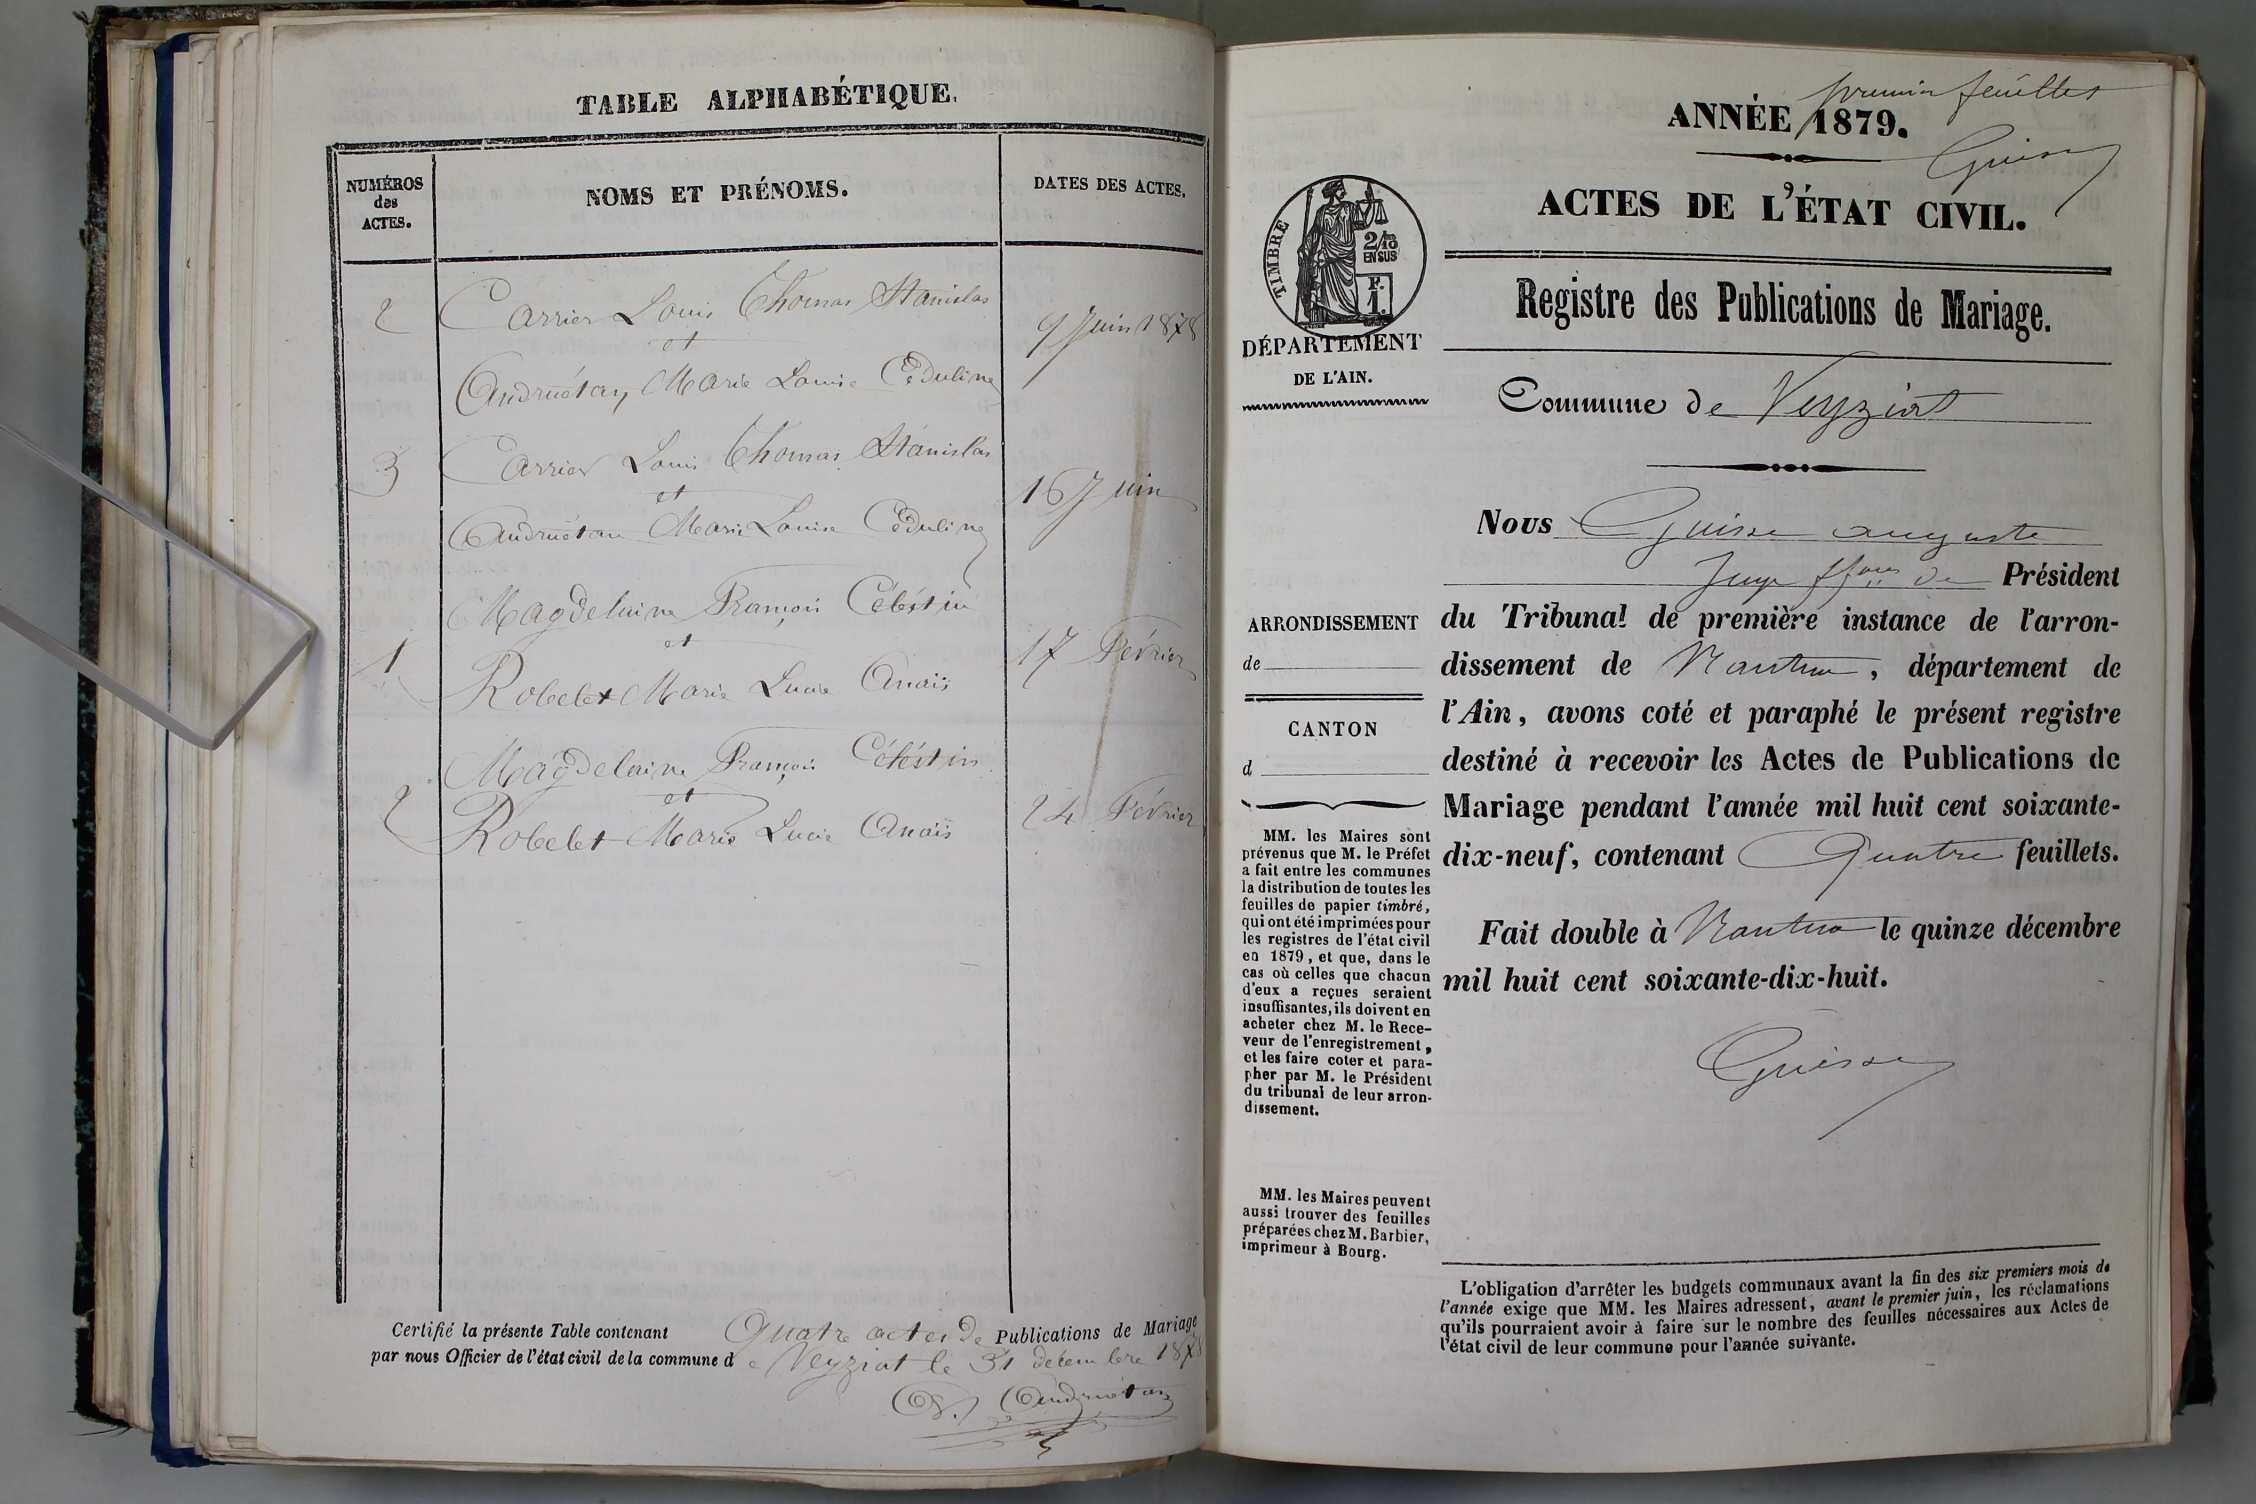 TABLE ALPHABÉTIQUE.
NUMÉROS
des
ACTES.
NOMS ET PRÉNOMS.
DATES DES ACTES.
2 Carrier Louis Thomas Stanislas
et 9 Juin 1878
Andruétan Marie Louise Céduline
3 Carrier Louis Thomas Stanislas
et 16 Juin
Andruétan Marie Louise Céduline
Magdelaine François Céléstin
et
1 Robelet Marie Lucie Anaïs 17 Février
Magdelaine François Céléstin
et
2 Robelet Marie Lucie Anaïs 24 Février
Certifié la présente Table contenant Quatre actes de Publications de Mariage
par nous Officier de l'état civil de la commune de Veyziat le 31 décembre 1878
Andruétan
premier feuillet
ANNÉE 1879.
Guisse
ACTES DE L'ÉTAT CIVIL.
TIMBRE
2/10
EN SUS
F.
1.
DÉPARTEMENT
DE L'AIN.
Registre des Publications de Mariage.
Commune de Veyziat
Nous Guisse auguste
Juge ffons de Président
du Tribunal de première instance de l'arron-
dissement de Nantua, département de
l'Ain, avons coté et paraphé le présent registre
destiné à recevoir les Actes de Publications de
Mariage pendant l'année mil huit cent soixante-
dix-neuf, contenant Quatre feuillets.
Fait double à Nantua le quinze décembre
mil huit cent soixante-dix-huit.
Guisse
ARRONDISSEMENT
de
CANTON
d
MM. les Maires sont
prévenus que M. le Préfet
a fait entre les communes
la distribution de toutes les
feuilles de papier timbré,
qui ont été imprimées pour
les registres de l'état civil
en 1879, et que, dans le
cas où celles que chacun
d'eux a reçues seraient
insuffisantes, ils doivent en
acheter chez M. le Rece-
veur de l'enregistrement,
et les faire coter et para-
pher par M. le Président
du tribunal de leur arron-
dissement.
MM. les Maires peuvent
aussi trouver des feuilles
préparées chez M. Barbier,
imprimeur à Bourg.
L'obligation d'arrêter les budgets communaux avant la fin des six premiers mois de
l'année exige que MM. les Maires adressent, avant le premier juin, les réclamations
qu'ils pourraient avoir à faire sur le nombre des feuilles nécessaires aux Actes de
l'état civil de leur commune pour l'année suivante.